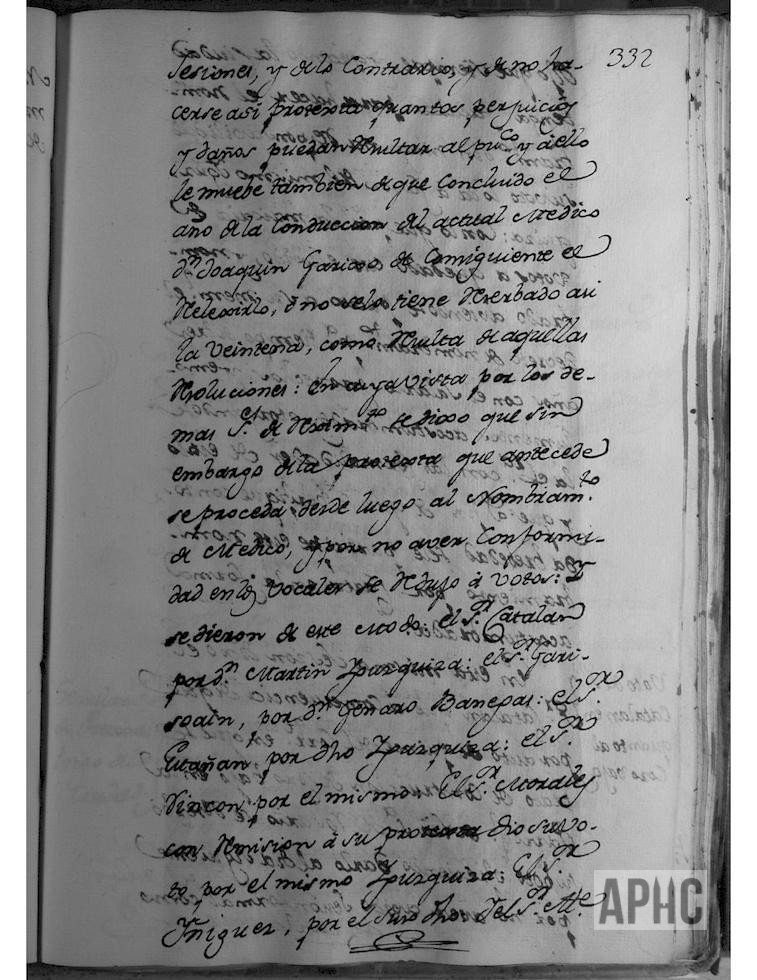 332
Sesiones, y de lo Contrario, y de no ha-
cerse asi protexta quantos perjuicios
y daños puedan Resultar al pu.co y a ello
le muebe tambien de que Concluido el
año de la Conduccion del actual Medico
d.n Joaquin Garicos de Consiguiente el
Relexirlo, o no se lo tiene Reserbado asi
la Veintena, como Resulta de aquellas
Resoluciones: En cuya vista por los de-
mas S.es de Regim.to se dixo que sin
embargo de la protexta que antecede
se proceda desde luego al Nombram.to
de Medico, y por no aver Conformi-
dad en los Vocales se Redujo à Votos: Y
se dieron de este Modo: el S.or Catalan
por d.n Martin Ypurguiza: el S.or Gari-
soain, por d.n Genaro Banegas: el S.or
Estañan por dho Ypurguiza: el S.or
Rincon por el mismo: El S.or Morales
con Remision à su protexta dio su vo-
to por el mismo Ypurguiza; El S.or
Yñiguez, por el suso dho. Y el S.or M.e
APHC